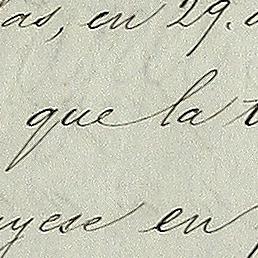 as, en 29.
que la t
yese en